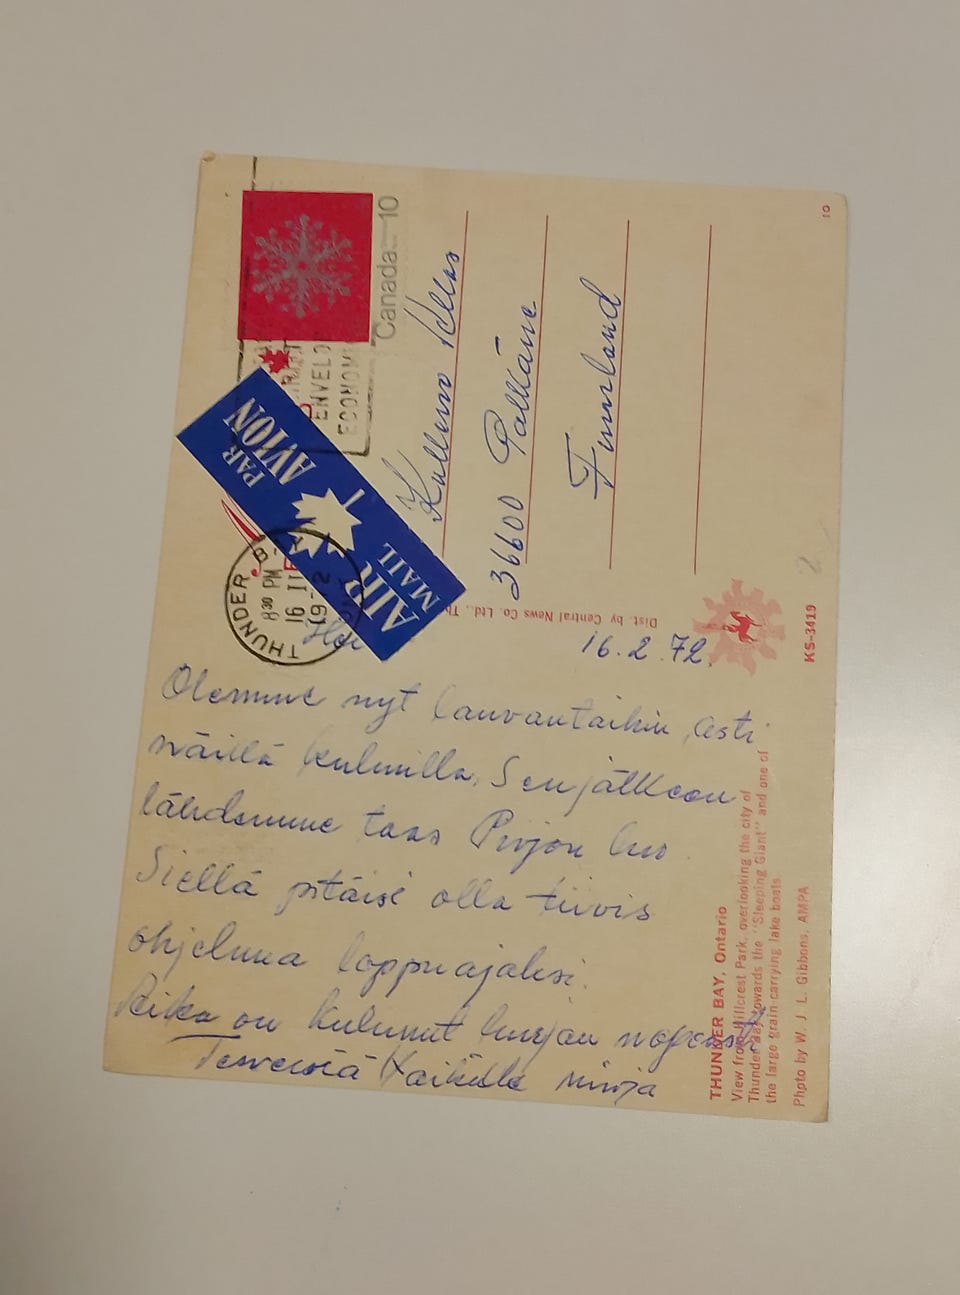 Hei
16.2.72.
Olemme nyt lauvantaihin asti
näillä kulmilla. Sen jälkeen
lähdemme taas Pirjon luo
Siellä pitäisi olla tiivis
ohjelma loppuajaksi.
Aika on kulunut hurjan nopeasti
Terveisiä kaikille
Kullervo
36600 Pälkäne
Finnland
Canada 10
ENVELO
ECONOM
PAR
AVION
AIR
MAIL
THUNDER BAY
8 30 PM
16 II
19 72
Dist. by Central News Co. Ltd., Th
THUNDER BAY, Ontario
View from Hillcrest Park, overlooking the city of
Thunder Bay towards the "Sleeping Giant" and one of
the large grain-carrying lake boats
Photo by W. J. L. Gibbons, AMPA
KS-3419
10
2